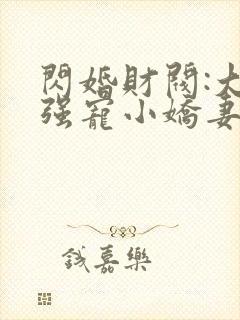 閃婚財閥:大
强寵小嬌妻
錢嘉樂